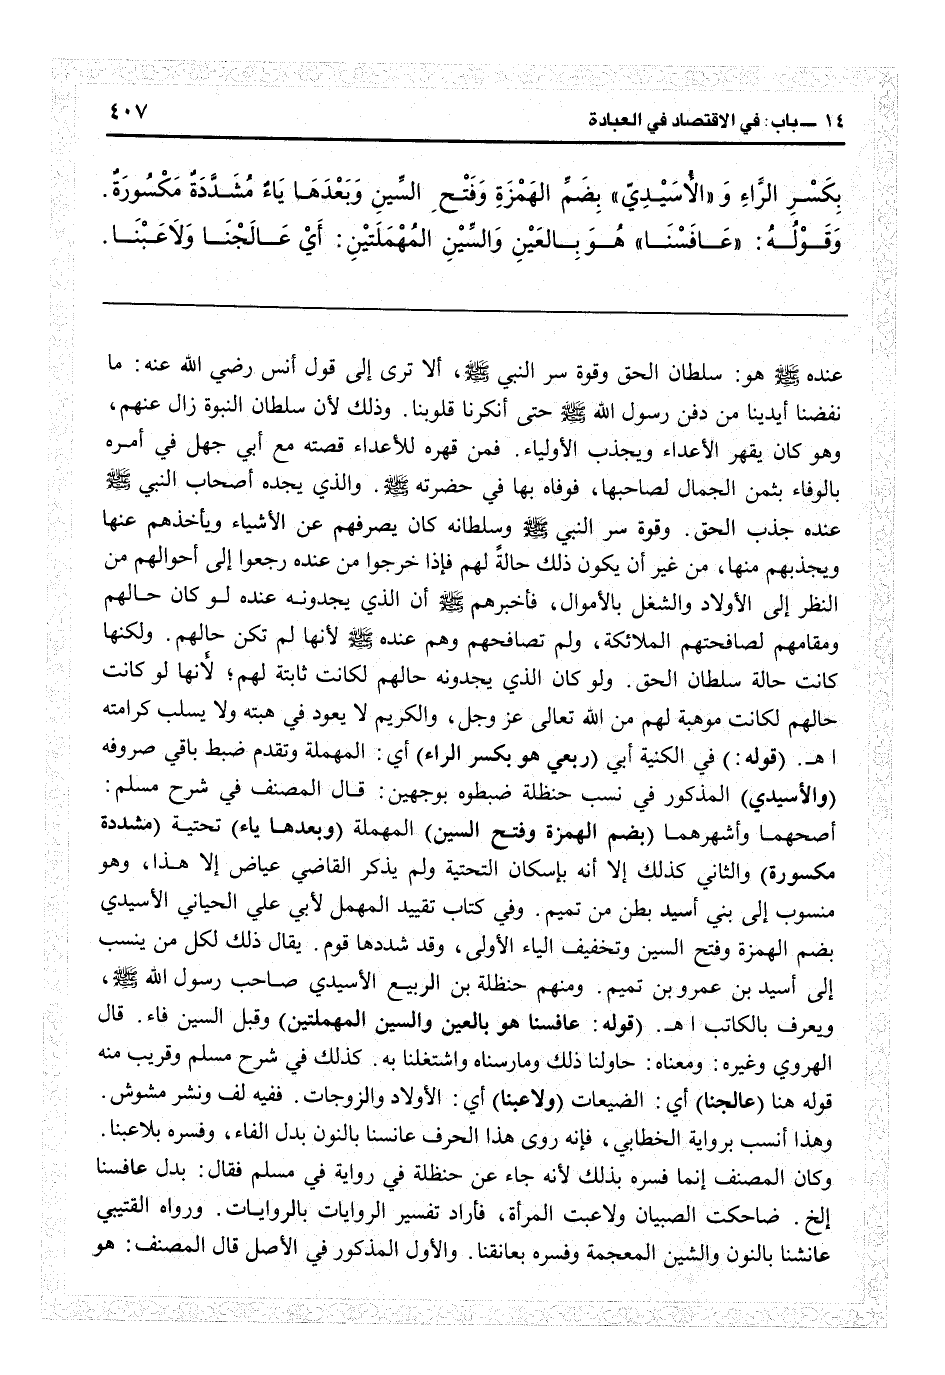 ١٤ ــ باب: في الاقتصاد في العبادة
٤٠٧
بِكَسْرِ الرَّاءِ وَ «الأُسَيِّدِيّ» بِضَمِّ الهَمْزَةِ وَفَتْحِ السِّينِ وَبَعْدَهَا يَاءٌ مُشَدَّدَةٌ مَكْسُورَةٌ.
وَقَوْلُهُ: «عَافَسْنَا» هُوَ بِالعَيْنِ وَالسِّيْنِ المُهْمَلَتَيْنِ: أَيْ عَالَجْنَا وَلَاعَبْنَا.
عنده ﷺ هو: سلطان الحق وقوة سر النبي ﷺ، ألا ترى إلى قول أنس رضي الله عنه: ما
نفضنا أيدينا من دفن رسول الله ﷺ حتى أنكرنا قلوبنا. وذلك لأن سلطان النبوة زال عنهم،
وهو كان يقهر الأعداء ويجذب الأولياء. فمن قهره للأعداء قصته مع أبي جهل في أمره
بالوفاء بثمن الجمال لصاحبها، فوفاه بها في حضرته ﷺ. والذي يجده أصحاب النبي ﷺ
عنده جذب الحق. وقوة سر النبي ﷺ وسلطانه كان يصرفهم عن الأشياء ويأخذهم عنها
ويجذبهم منها، من غير أن يكون ذلك حالةً لهم فإذا خرجوا من عنده رجعوا إلى أحوالهم من
النظر إلى الأولاد والشغل بالأموال، فأخبرهم ﷺ أن الذي يجدونه عنده لو كان حالهم
ومقامهم لصافحتهم الملائكة، ولم تصافحهم وهم عنده ﷺ لأنها لم تكن حالهم. ولكنها
كانت حالة سلطان الحق. ولو كان الذي يجدونه حالهم لكانت ثابتة لهم؛ لأنها لو كانت
حالهم لكانت موهبة لهم من الله تعالى عز وجل، والكريم لا يعود في هبته ولا يسلب كرامته
ا هـ. (قوله:) في الكنية أبي (ربعي هو بكسر الراء) أي: المهملة وتقدم ضبط باقي صروفه
(والأسيدي) المذكور في نسب حنظلة ضبطوه بوجهين: قال المصنف في شرح مسلم:
أصحهما وأشهرهما (بضم الهمزة وفتح السين) المهملة (وبعدها ياء) تحتية (مشددة
مكسورة) والثاني كذلك إلا أنه بإسكان التحتية ولم يذكر القاضي عياض إلا هذا، وهو
منسوب إلى بني أسيد بطن من تميم. وفي كتاب تقييد المهمل لأبي علي الحياني الأسيدي
بضم الهمزة وفتح السين وتخفيف الياء الأولى، وقد شددها قوم. يقال ذلك لكل من ينسب
إلى أسيد بن عمرو بن تميم. ومنهم حنظلة بن الربيع الأسيدي صاحب رسول الله ﷺ،
ويعرف بالكاتب ا هـ. (قوله: عافسنا هو بالعين والسين المهملتين) وقبل السين فاء. قال
الهروي وغيره: ومعناه: حاولنا ذلك ومارسناه واشتغلنا به. كذلك في شرح مسلم وقريب منه
قوله هنا (عالجنا) أي: الضيعات (ولاعبنا) أي: الأولاد والزوجات. ففيه لف ونشر مشوش.
وهذا أنسب برواية الخطابي، فإنه روى هذا الحرف عانسنا بالنون بدل الفاء، وفسره بلاعبنا.
وكان المصنف إنما فسره بذلك لأنه جاء عن حنظلة في رواية في مسلم فقال: بدل عافسنا
إلخ. ضاحكت الصبيان ولاعبت المرأة، فأراد تفسير الروايات بالروايات. ورواه القتيبي
عانشنا بالنون والشين المعجمة وفسره بعانقنا. والأول المذكور في الأصل قال المصنف: هو